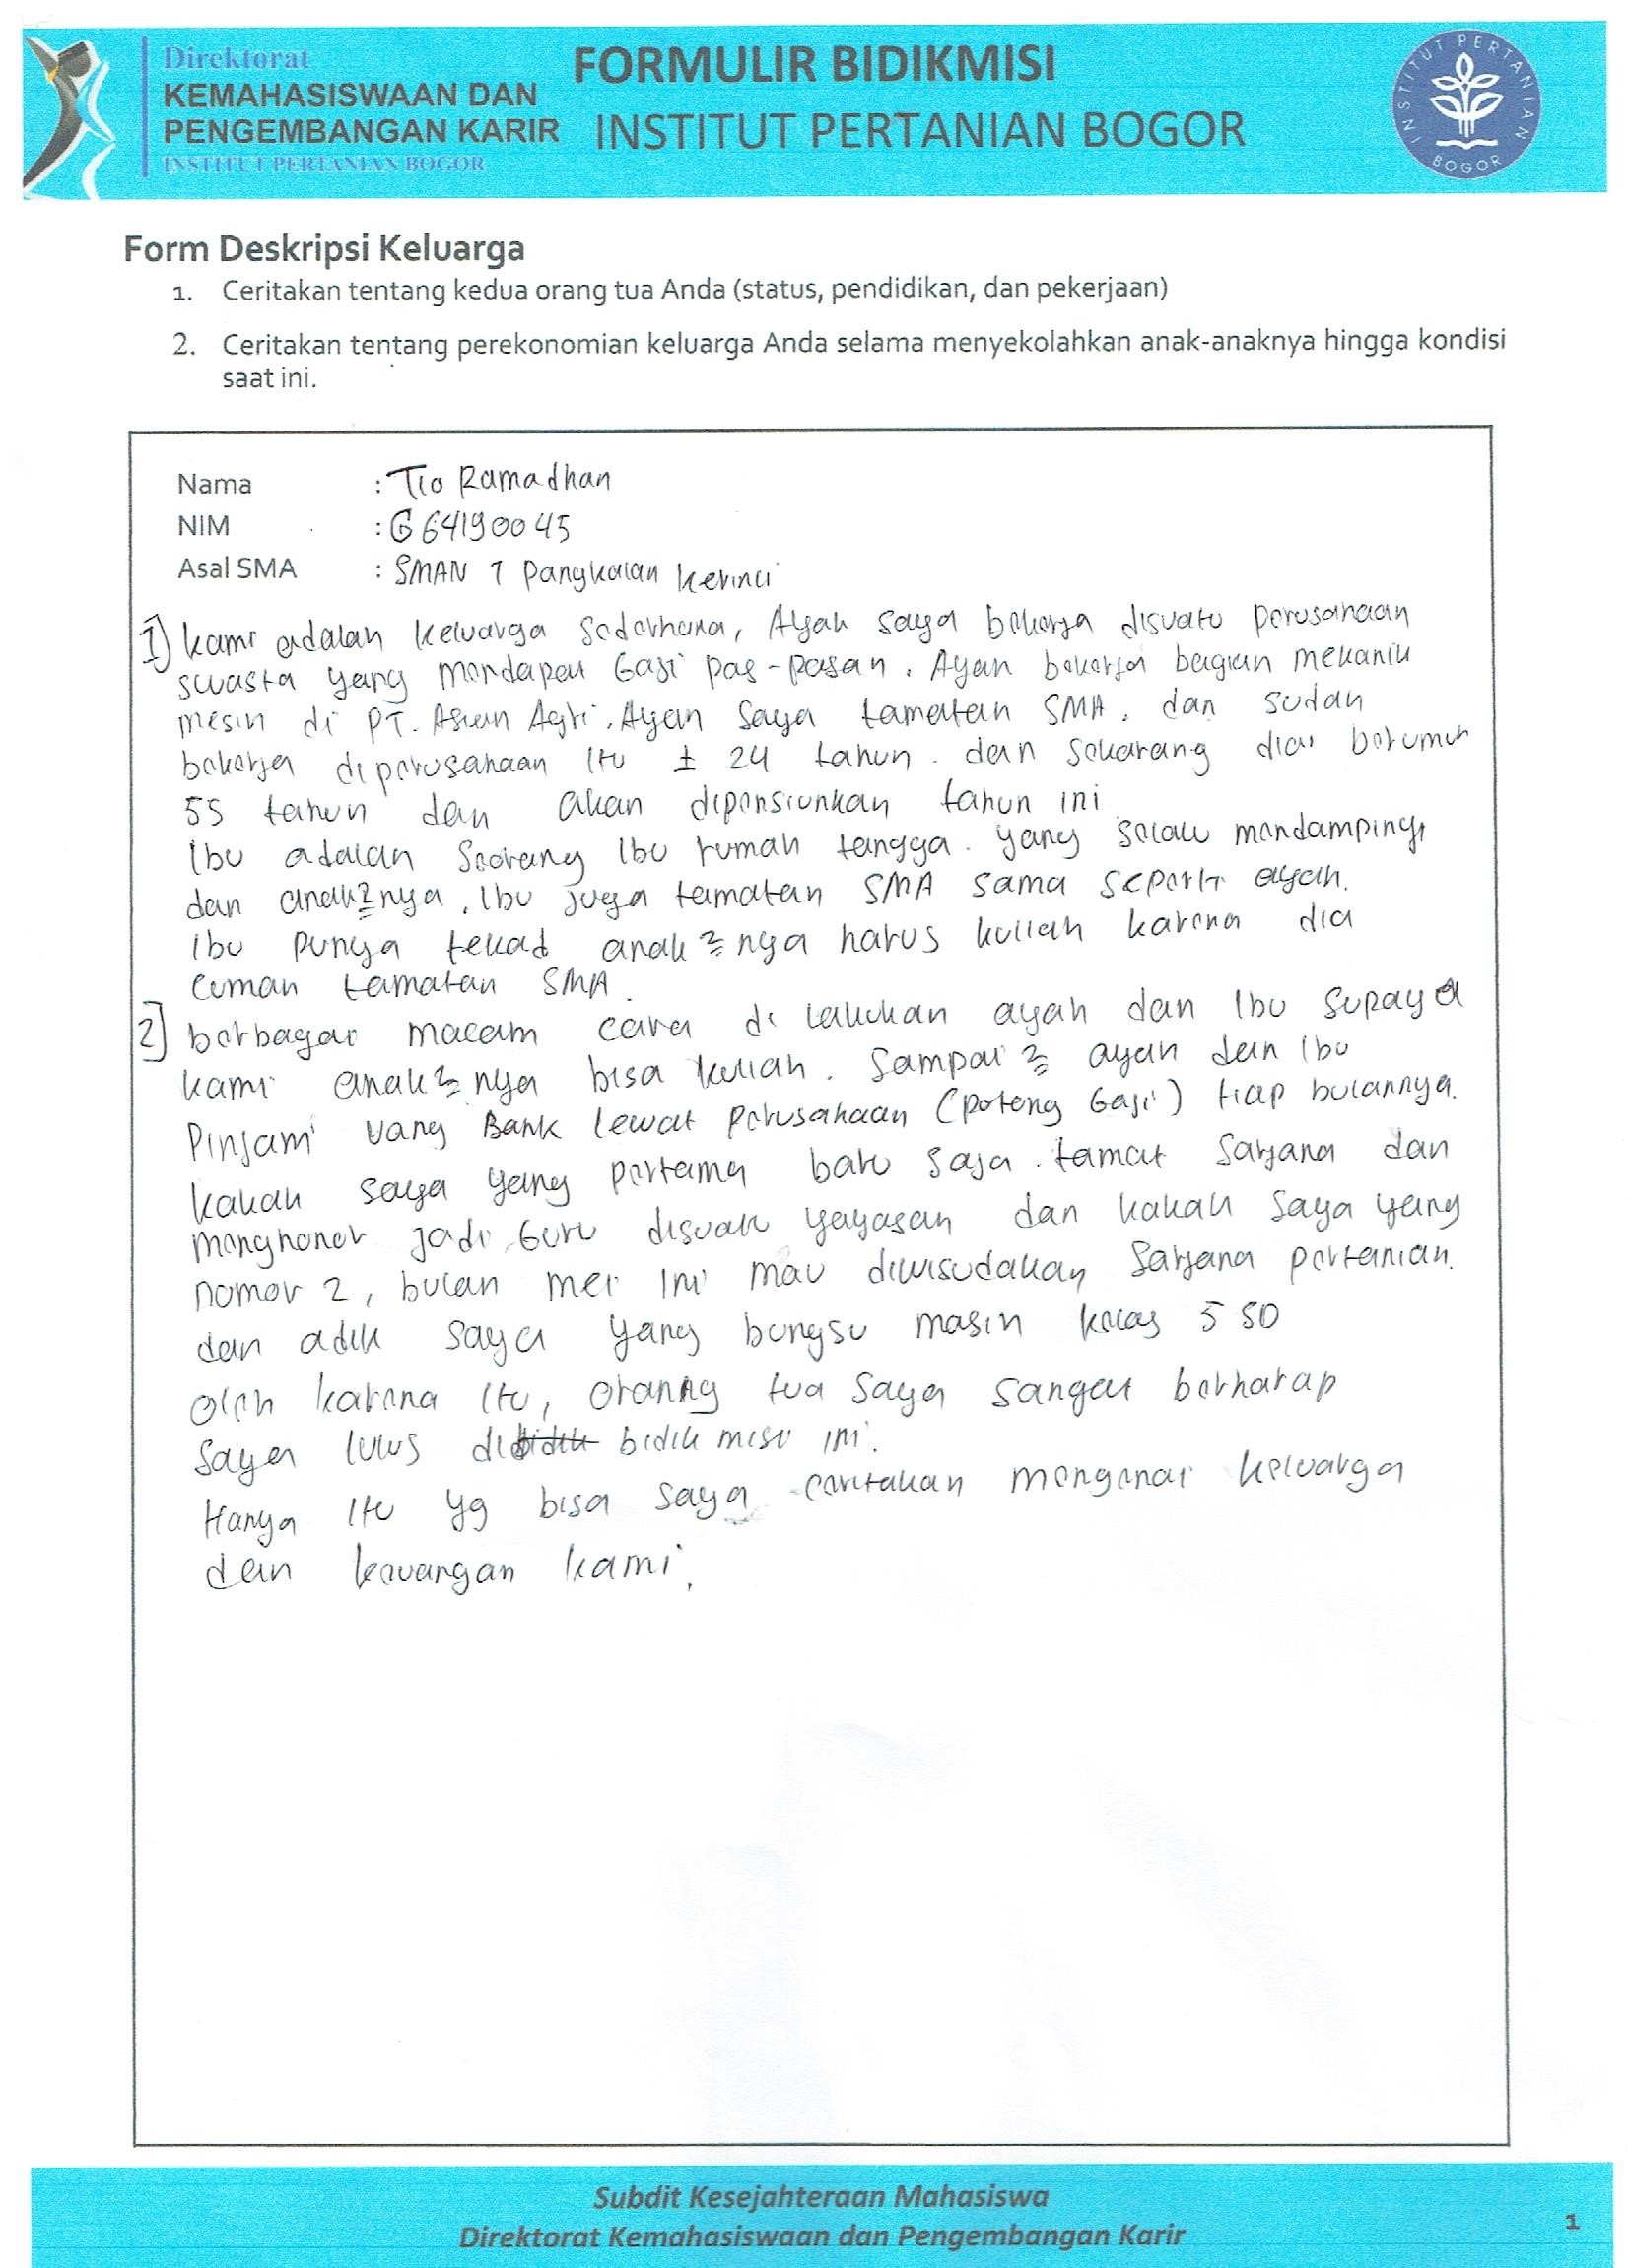 Direktorat
KEMAHASISWAAN DAN
PENGEMBANGAN KARIR
INSTITUT PERTANIAN BOGOR
FORMULIR BIDIKMISI
INSTITUT PERTANIAN BOGOR
INSTITUT PERTANIAN
BOGOR
Form Deskripsi Keluarga
1. Ceritakan tentang kedua orang tua Anda (status, pendidikan, dan pekerjaan)
2. Ceritakan tentang perekonomian keluarga Anda selama menyekolahkan anak-anaknya hingga kondisi
saat ini.
Nama : Tio Ramadhan
NIM : G64190045
Asal SMA : SMAN 1 Pangkalan Kerinci
1] kami adalah keluarga sederhana, Ayah saya bekerja disuatu perusahaan
swasta yang mendapat Gaji pas-pasan. Ayah bekerja bagian mekanik
mesin di PT. Asian Agri. Ayah saya tamatan SMA. dan sudah
bekerja diperusahaan itu ± 24 tahun. dan sekarang dia berumur
55 tahun dan akan dipensiunkan tahun ini
Ibu adalah seorang Ibu rumah tangga. yang selalu mendampingi
dan anak2nya. Ibu juga tamatan SMA sama seperti ayah.
Ibu punya tekad anak2nya harus kuliah karena dia
cuman tamatan SMA.
2] berbagai macam cara di lakukan ayah dan Ibu supaya
kami anak2nya bisa kuliah. Sampai2 ayah dan Ibu
Pinjam uang Bank lewat perusahaan (Potong Gaji) tiap bulannya.
kakak saya yang pertama baru saja tamat Sarjana dan
menghonor jadi Guru disuatu yayasan dan kakak saya yang
nomor 2, bulan mei ini mau diwisudakan Sarjana pertanian.
dan adik saya yang bungsu masih kelas 5 SD
Oleh karena itu, orang tua saya sangat berharap
saya lulus di bidik misi ini.
Hanya itu yg bisa saya ceritakan mengenai keluarga
dan keuangan kami.
Subdit Kesejahteraan Mahasiswa
Direktorat Kemahasiswaan dan Pengembangan Karir
1